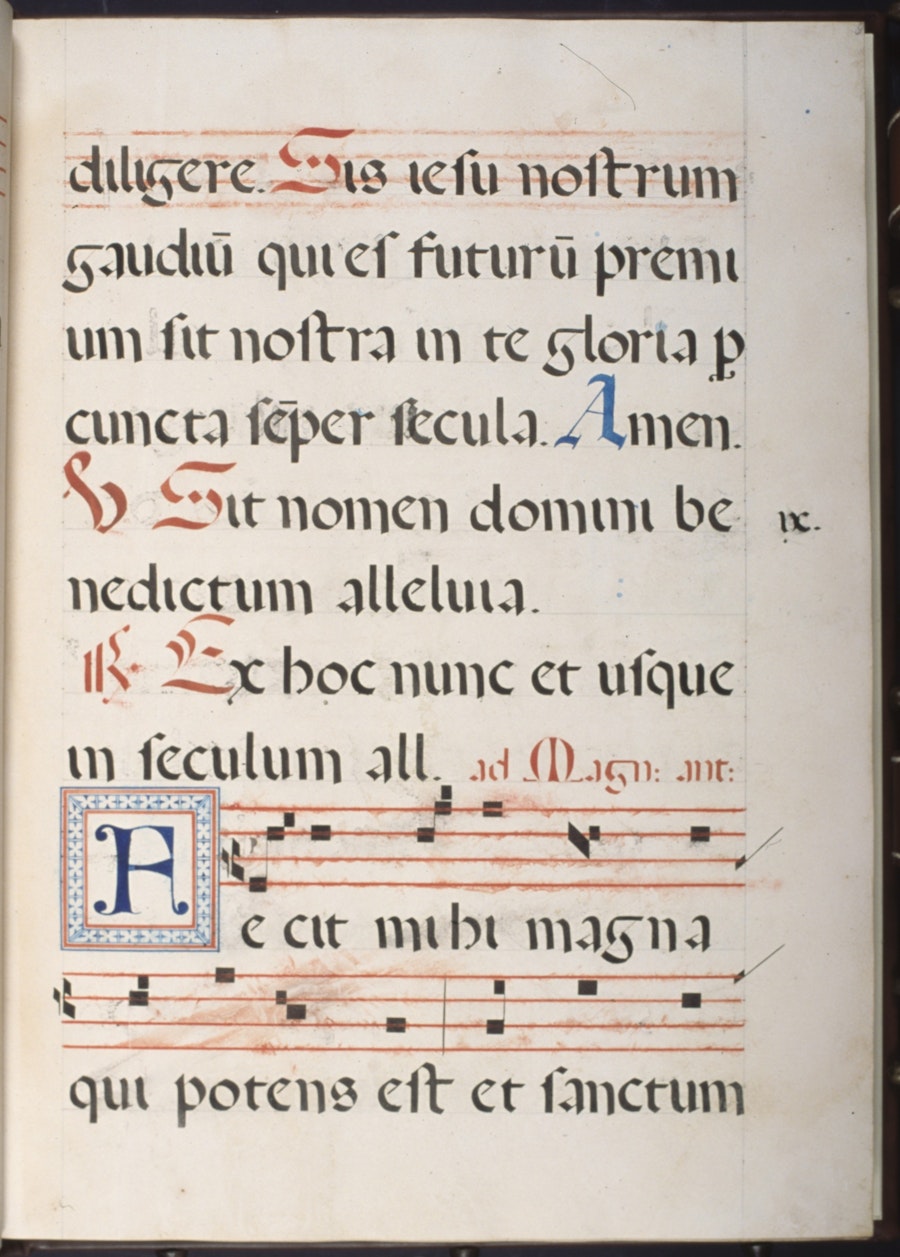 diligere. Sis iesu nostrum
gaudiū qui es futurū premi
um sit nostra in te gloria ꝑ
cuncta sēper secula. Amen.
℣ Sit nomen domini be
ix.
nedictum alleluia.
℟. Ex hoc nunc et usque
in seculum all. ad Magn: ant:
Fecit mihi magna
qui potens est et sanctum